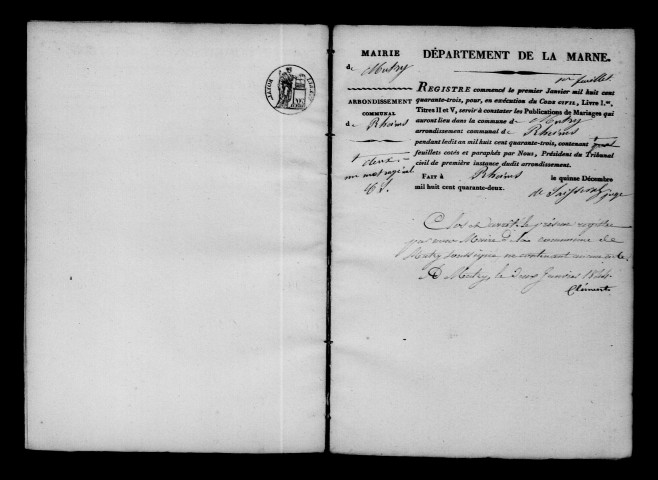 MAIRIE
de Mutry
ARRONDISSEMENT
COMMUNAL
de Rheims
+ deux
un mot rayé nul
DÉPARTEMENT DE LA MARNE.
1er feuillet
REGISTRE commencé le premier Janvier mil huit cent
quarante-trois, pour, en exécution du CODE CIVIL, Livre I.er,
Titres II et V, servir à constater les Publications de Mariages qui
auront lieu dans la commune de Mutry
arrondissement communal de Rheims
pendant ledit an mil huit cent quarante-trois, contenant
feuillets cotés et paraphés par Nous, Président du Tribunal
civil de première instance dudit arrondissement.
FAIT à Rheims le quinze Décembre
mil huit cent quarante-deux.
juge
Clos et arrêté le présent registre
par nous Maire de la commune de
Mutry soussigné ne contenant aucun acte.
A Mutry, le deux Janvier 1844.
Clément